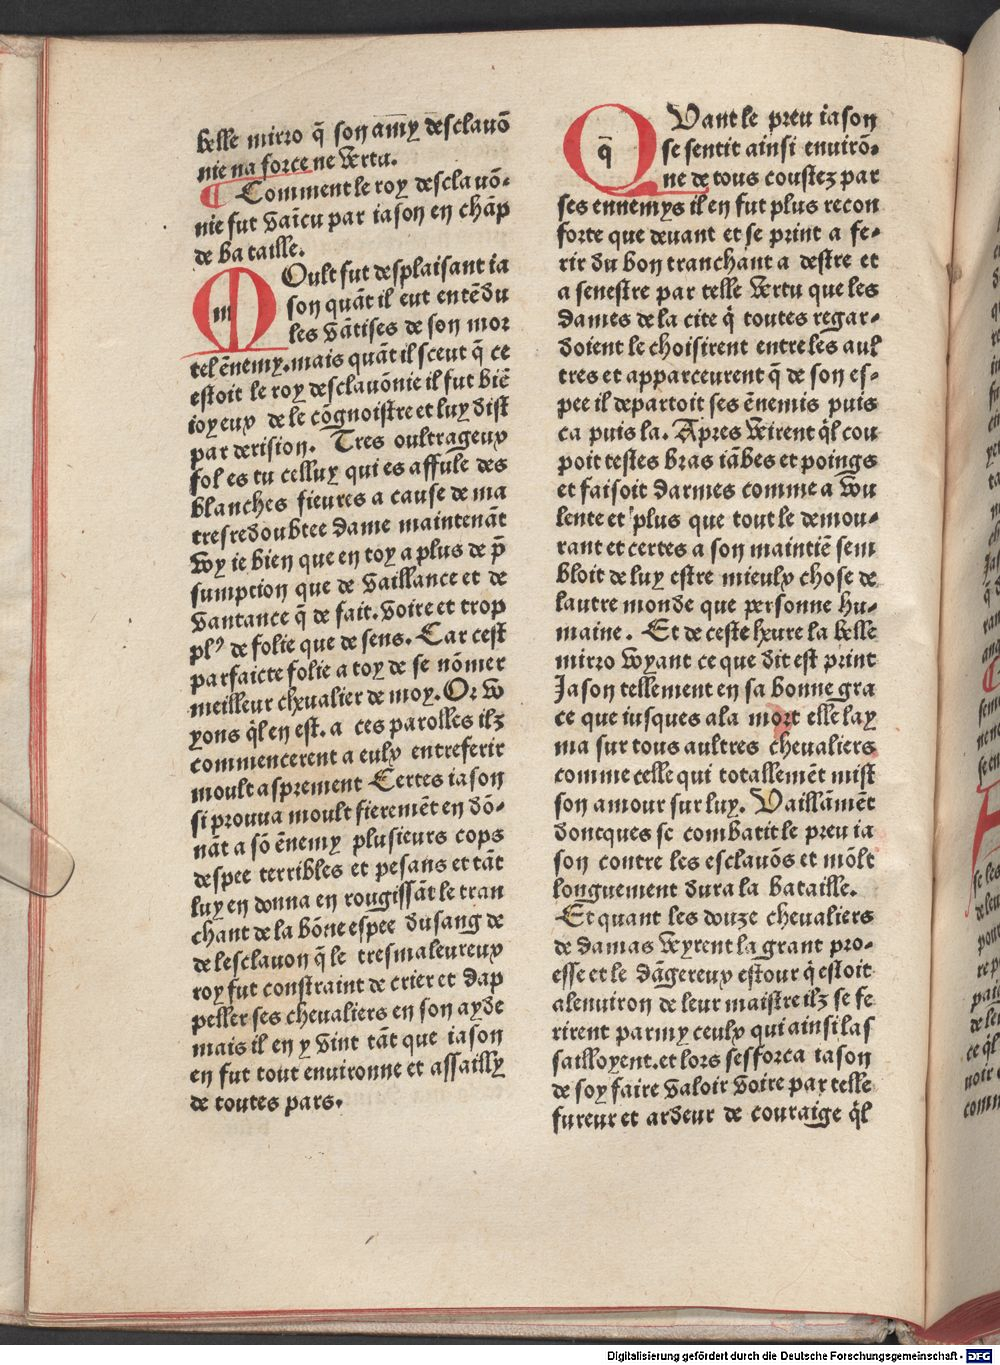 belle mirro q̄ son amȳ desclauō
nie na force ne vertu.
¶ Comment le roy desclauō-
nie fut vaīcu par iason en chāp
de bataille.
MOult fut desplaisant ia
son quāt il eut entēdu
les vātises de son mor
tel ēnemy. mais quāt il sceut q̄ ce
estoit le roy desclauōnie il fut biē
ioyeux de le cōgnoistre et luy dist
par derision. Tres oultrageux
fol es tu celluy qui es affule des
blanches fieures a cause de ma
tresredoubtee dame maintenāt
voy ie bien que en toy a plus de p̄
sumption que de vaillance et de
vantance q̄ de fait. voire et trop
plꝰ de folie que de sens. Car cest
parfaicte folie a toy de se nōmer
meilleur cheualier de moy. Or vo
yons q̄l en est. a ces parolles ilz
commencerent a eulx entreferir
moult asprement Certes iason
si prouua moult fieremēt en dō-
nāt a sō ēnemy plusieurs cops
despee terribles et pesans et tāt
luy en donna en rougissāt le tran
chant de la bōne espee du sang de
de lesclauon q̄ le tresmaleureux
roy fut constraint de crier et dap
peller ses cheualiers en son ayde
mais il en y vint tāt que iason
en fut tout enuironne et assailly
de toutes pars.
QVant le preu iason
se sentit ainsi enuirō-
ne de tous coustez par
ses ennemys il en fut plus recon
forte que deuant et se print a fe-
rir du bon tranchant a destre et
a senestre par telle vertu que les
dames de la cite q̄ toutes regar-
doient le choisirent entre les aul
tres et apparceurent q̄ de son es-
pee il departoit ses ēnemis puis
ca puis la. Apres veirent q̄l cou
poit testes bras iābes et poings
et faisoit darmes comme a vou
lente et plus que tout le demou-
rant et certes a son maintiē sem
bloit de luy estre mieulx chose de
lautre monde que personne hu-
maine. Et de ceste heure la belle
mirro voyant ce que dit est print
Jason tellement en sa bonne gra
ce que iusques ala mort elle lay
ma sur tous aultres cheualiers
comme celle qui totallemēt mist
son amour sur luy. Vaillāmēt
doncques se combatit le preu ia
son contre les esclauōs et mōlt
longuement dura la bataille.
Et quant les douze cheualiers
de damas veyrent la grant pro-
esse et le dāgereux estour q̄ estoit
alenuiron de leur maistre ilz se fe
rirent parmy ceulx qui ainsi las
sailloyent. et lors sefforca iason
de soy faire valoir voire par telle
fureur et ardeur de couraige q̄l
Digitalisierung gefördert durch die Deutsche Forschungsgemeinschaft - DFG